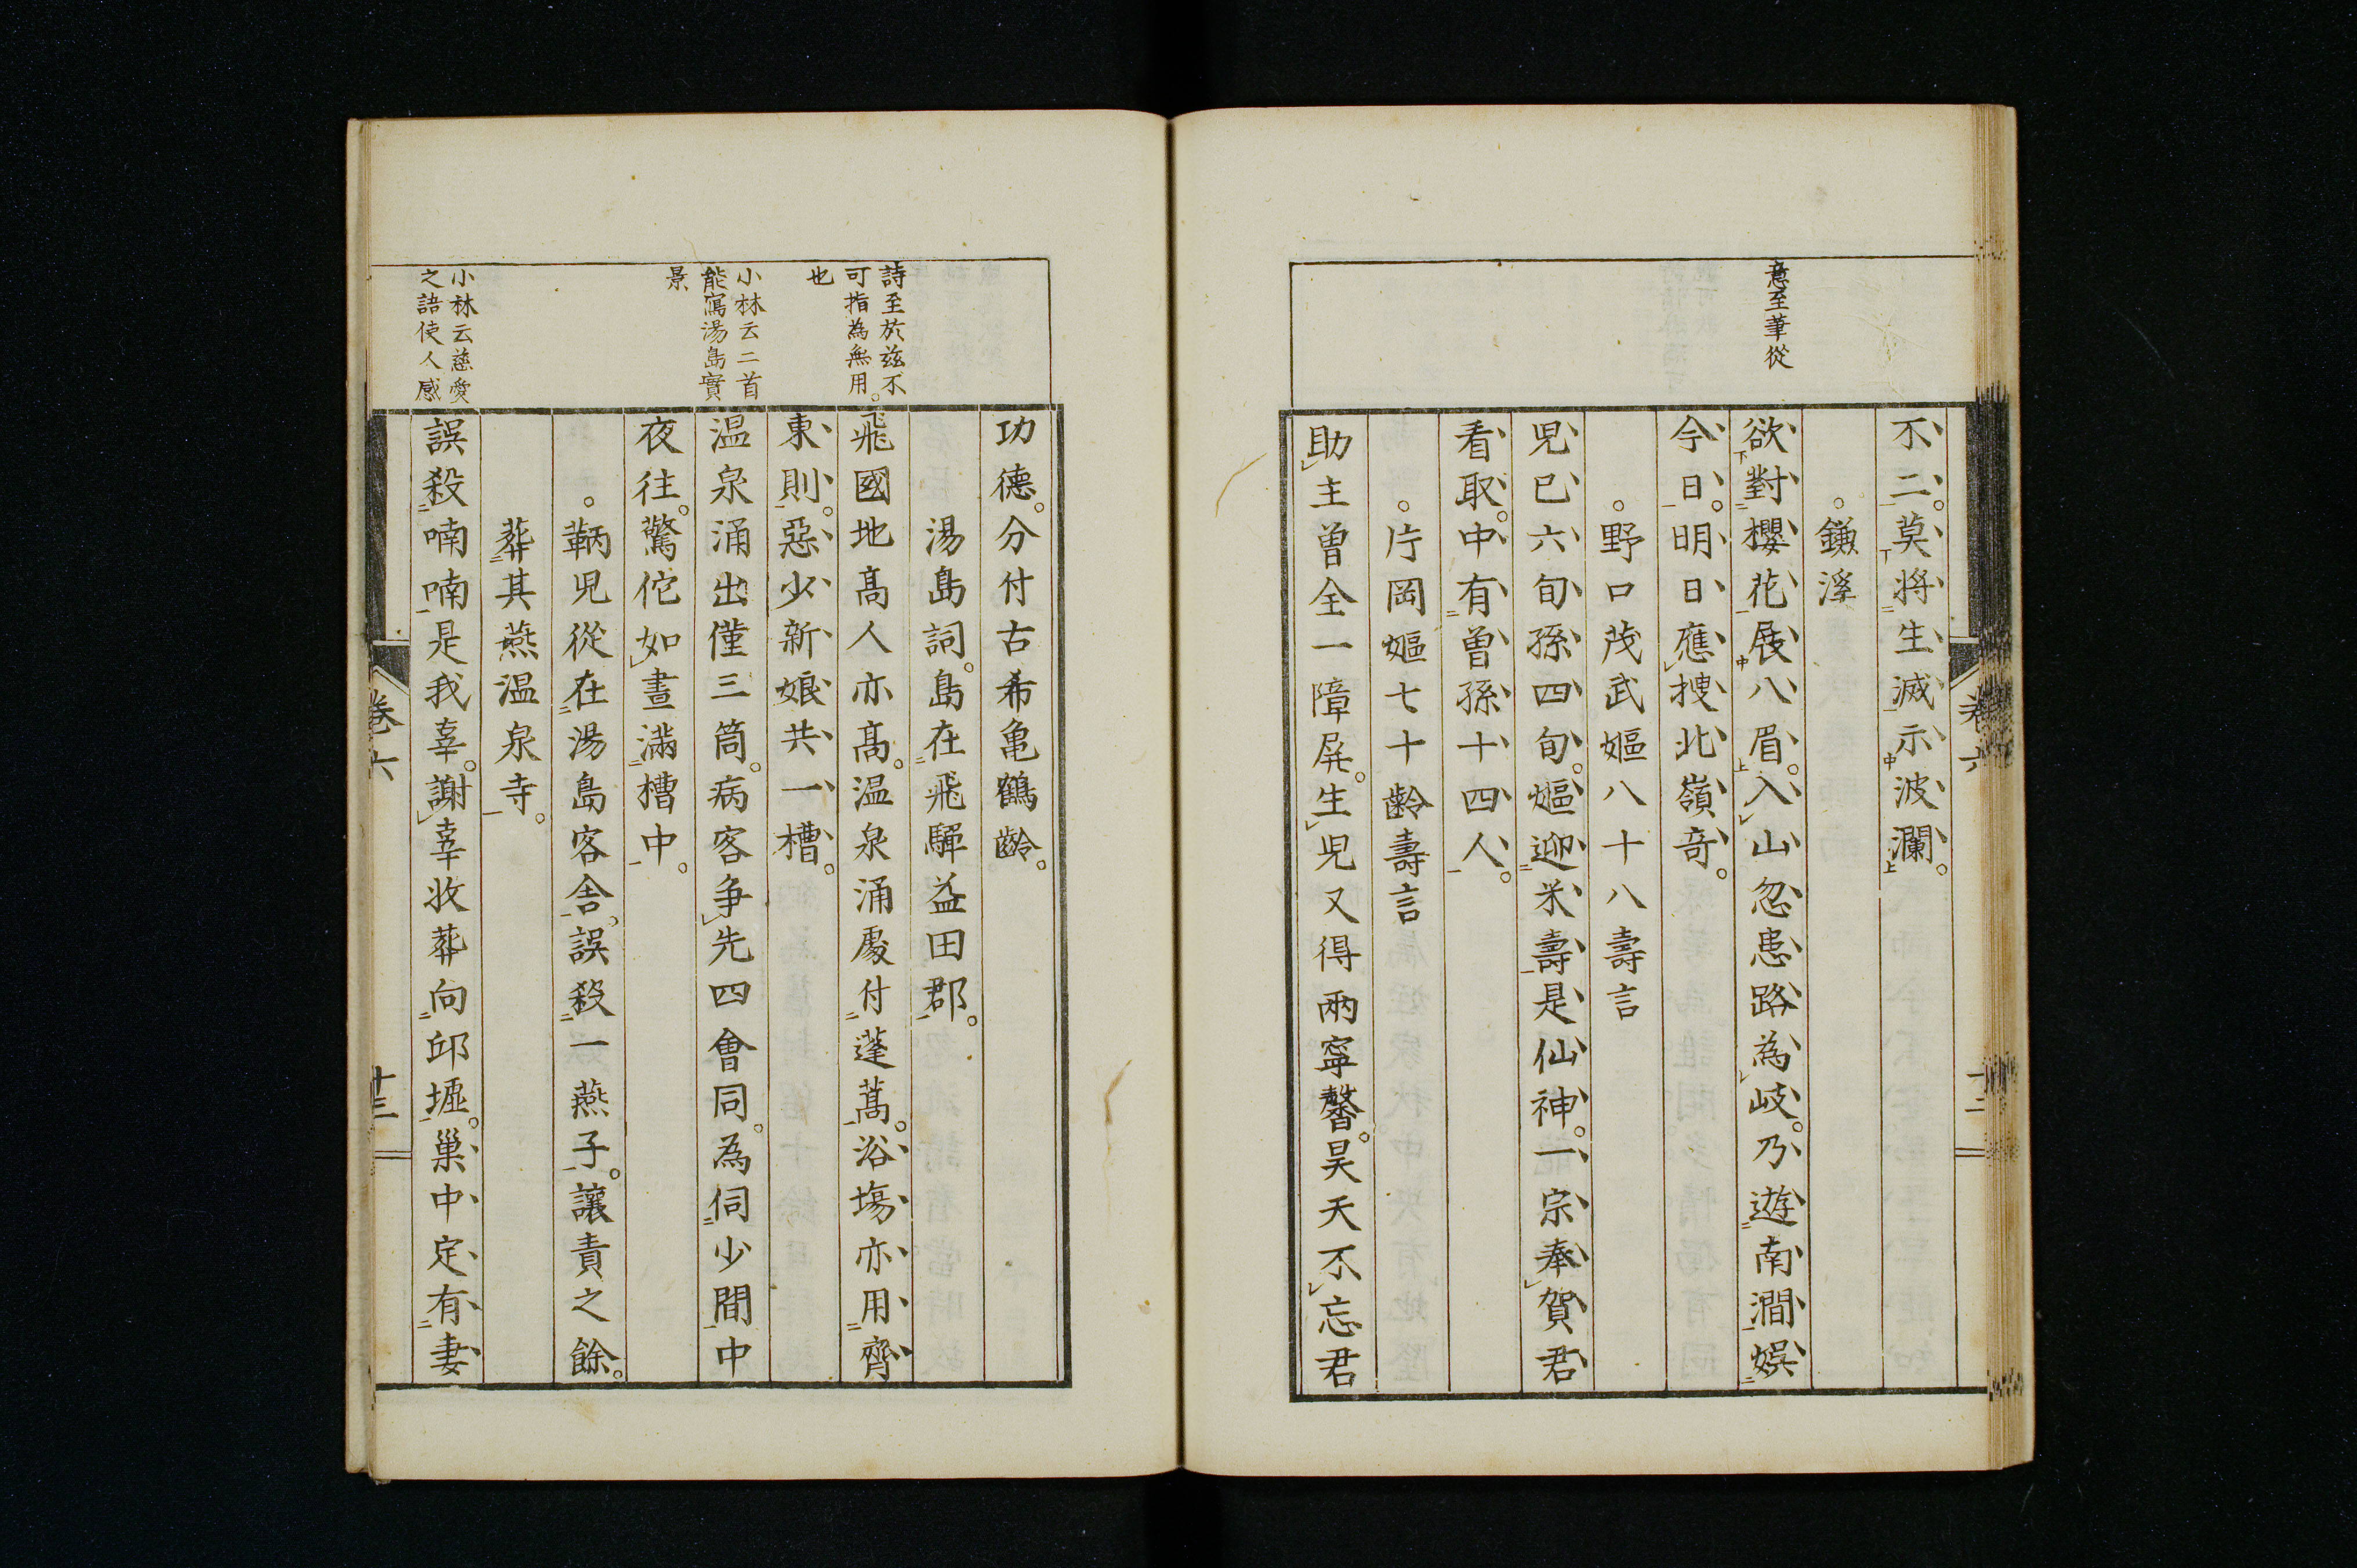 意至筆從
不二。莫將生滅示波瀾。
。鎌溪
欲對櫻花展八眉。入山忽患路為岐。乃遊南澗娯
今日。明日應捜北嶺奇。
。野口茂武嫗八十八壽言
児已六旬孫四旬。嫗迎米壽是仙神。一宗奉賀君
看取。中有曽孫十四人。
。片岡嫗七十齢壽言
助主曽全一障屏。生児又得兩寧馨。昊天不忘君
卷六
十二
詩至於茲不
可指為無用。
也
小林云二首
能寫湯島實
景
小林云慈愛
之語使人感
功德。分付古希亀鶴齡。
湯島詞。島在飛驒益田郡。
飛國地髙人亦髙。温泉涌處付蓬蒿。浴場亦用齊
東則。惡少新娘共一槽。
温泉涌出僅三筒。病客争先四會同。為伺少間中
夜往。驚佗如晝滿槽中。
。鞆児從在湯島客舎。誤殺一燕子。讓責之餘。
葬其燕温泉寺。
誤殺喃喃是我辜。謝辜收葬向邱墟。巣中定有妻
卷六
十三